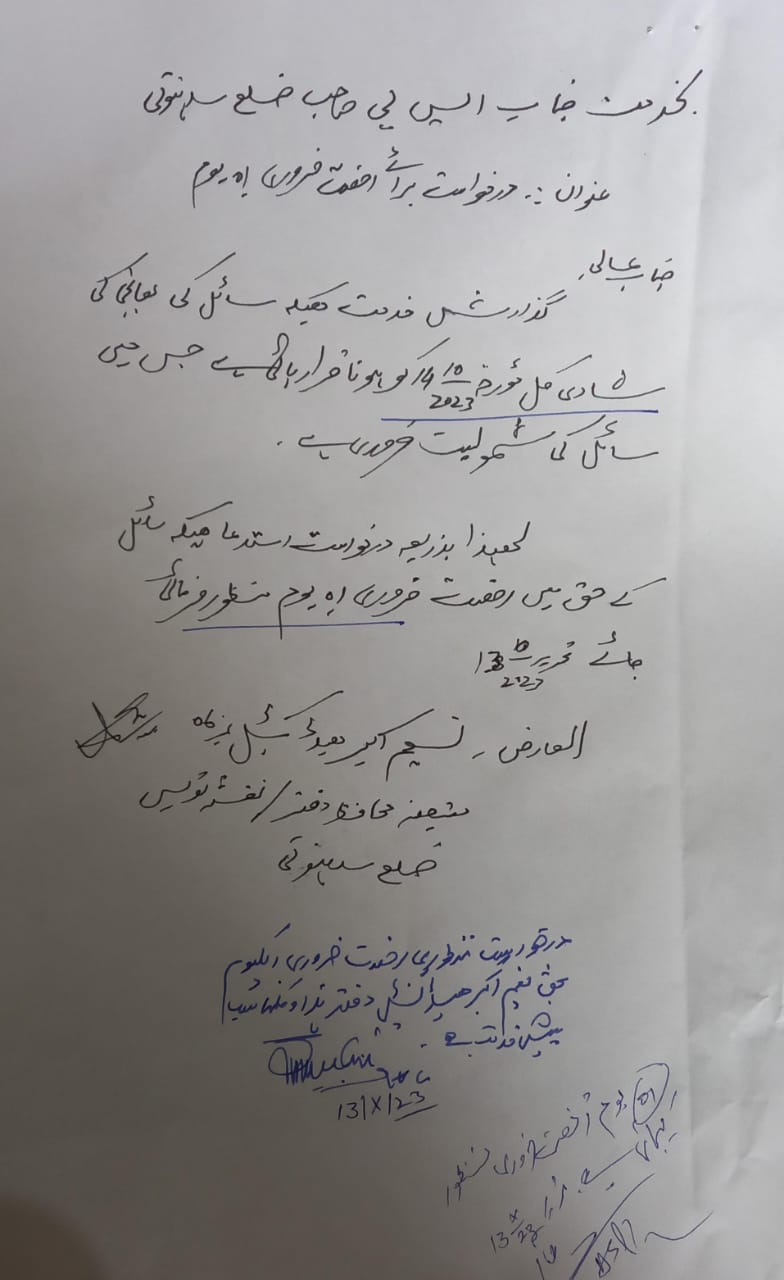 بخدمت جناب ایس پی صاحب ضلع سدہنوتی
عنوان :۔ درخواست برائے رخصت ضروری 01 یوم
جناب عالی
گذارش خدمت ہیکہ سائل کی بھانجی کی
شادی کل مورخہ 14 10 2023 کو ہونا قرار پائی ہے جس میں
سائل کی شمولیت ضروری ہے ۔
لہذا بذریعہ درخواست استدعا ہیکہ سائل
کے حق میں رخصت ضروری 01 یوم منظور فرمائی
جائے تحریر 13 10 2023
العارض ۔ اکبر ہیڈ کنسٹیبل نمبر 06
متعینہ محافظ دفتر / نقشہ نویس
ضلع سدہنوتی
درخواست منظوری رخصت ضروری ایکیوم
بحق اکبر ہیڈ کنسٹیبل دفتر
پیش خدمت ہے ۔
13/X/23
01 یوم رخصت ضروری منظور
کی جاتی ہے
13 X 23